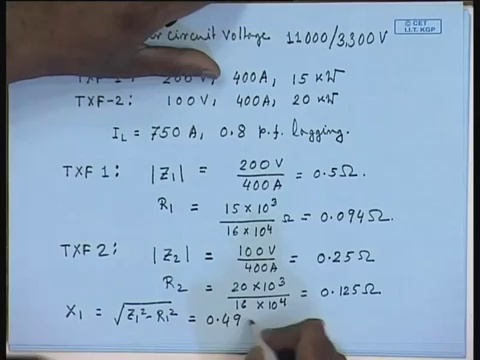 circuit Voltage 11000/3,300V
© CET
I.I.T. KGP
TXF-1: 200V, 400A, 15 kW
TXF-2: 100V, 400A, 20 kW
I_L = 750 A, 0.8 p.f. lagging.
TXF 1: |Z₁| = 200 V / 400 A = 0.5Ω.
R₁ = 15 × 10³ / 16 × 10⁴ Ω = 0.094Ω.
TXF 2: |Z₂| = 100V / 400A = 0.25Ω
R₂ = 20 × 10³ / 16 × 10⁴ = 0.125Ω
X₁ = √(Z₁² - R₁²) = 0.49